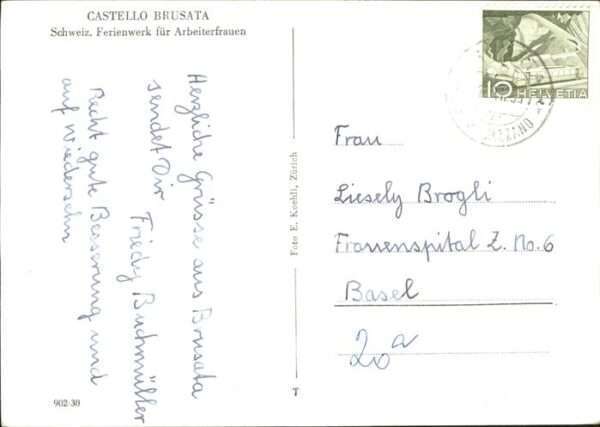 CASTELLO BRUSATA
Schweiz. Ferienwerk für Arbeiterfrauen
Herzliche Grüsse aus Brusata
sendet Dir
Friedy Buchmüller
Recht gute Besserung und
auf Wiedersehn
902-30
Foto E. Koehli, Zürich
T
10 HELVETIA
Frau
Liesely Brogli
Frauenspital Z. No. 6
Basel
20a